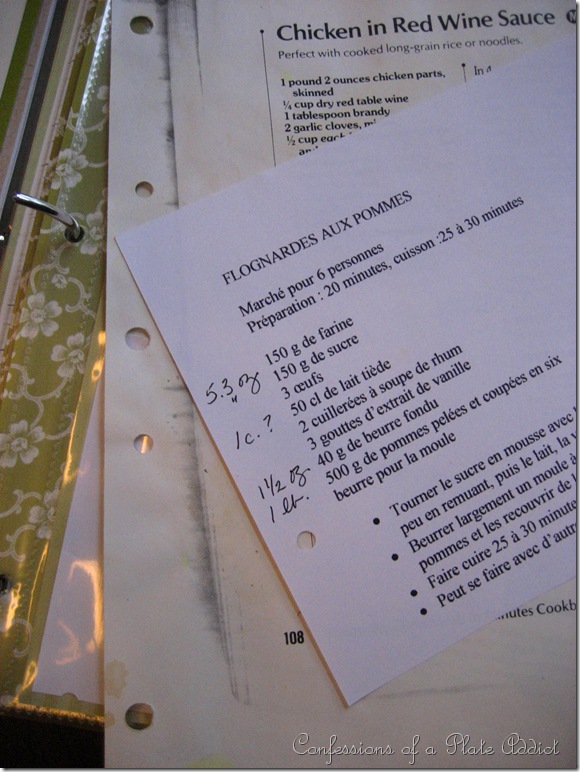 Chicken in Red Wine Sauce
Perfect with cooked long-grain rice or noodles.
1 pound 2 ounces chicken parts,
skinned
¼ cup dry red table wine
1 tablespoon brandy
2 garlic cloves,
½ cup
In
FLOGNARDES AUX POMMES
Marché pour 6 personnes
Préparation : 20 minutes, cuisson :25 à 30 minutes
150 g de farine
5.3 oz 150 g de sucre
" 3 œufs
1 c. ? 50 cl de lait tiède
2 cuillerées à soupe de rhum
3 gouttes d'extrait de vanille
1 1/2 oz 40 g de beurre fondu
1 lb. 500 g de pommes pelées et coupées en six
beurre pour la moule
• Tourner le sucre en mousse avec
peu en remuant, puis le lait, la
• Beurrer largement un moule à
pommes et les recouvrir de
• Faire cuire 25 à 30 minute
• Peut se faire avec d'autr
108
inutes Cookb
Confessions of a Plate Addict